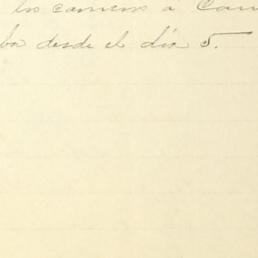 los carneros á Cam
ba desde el día 5.